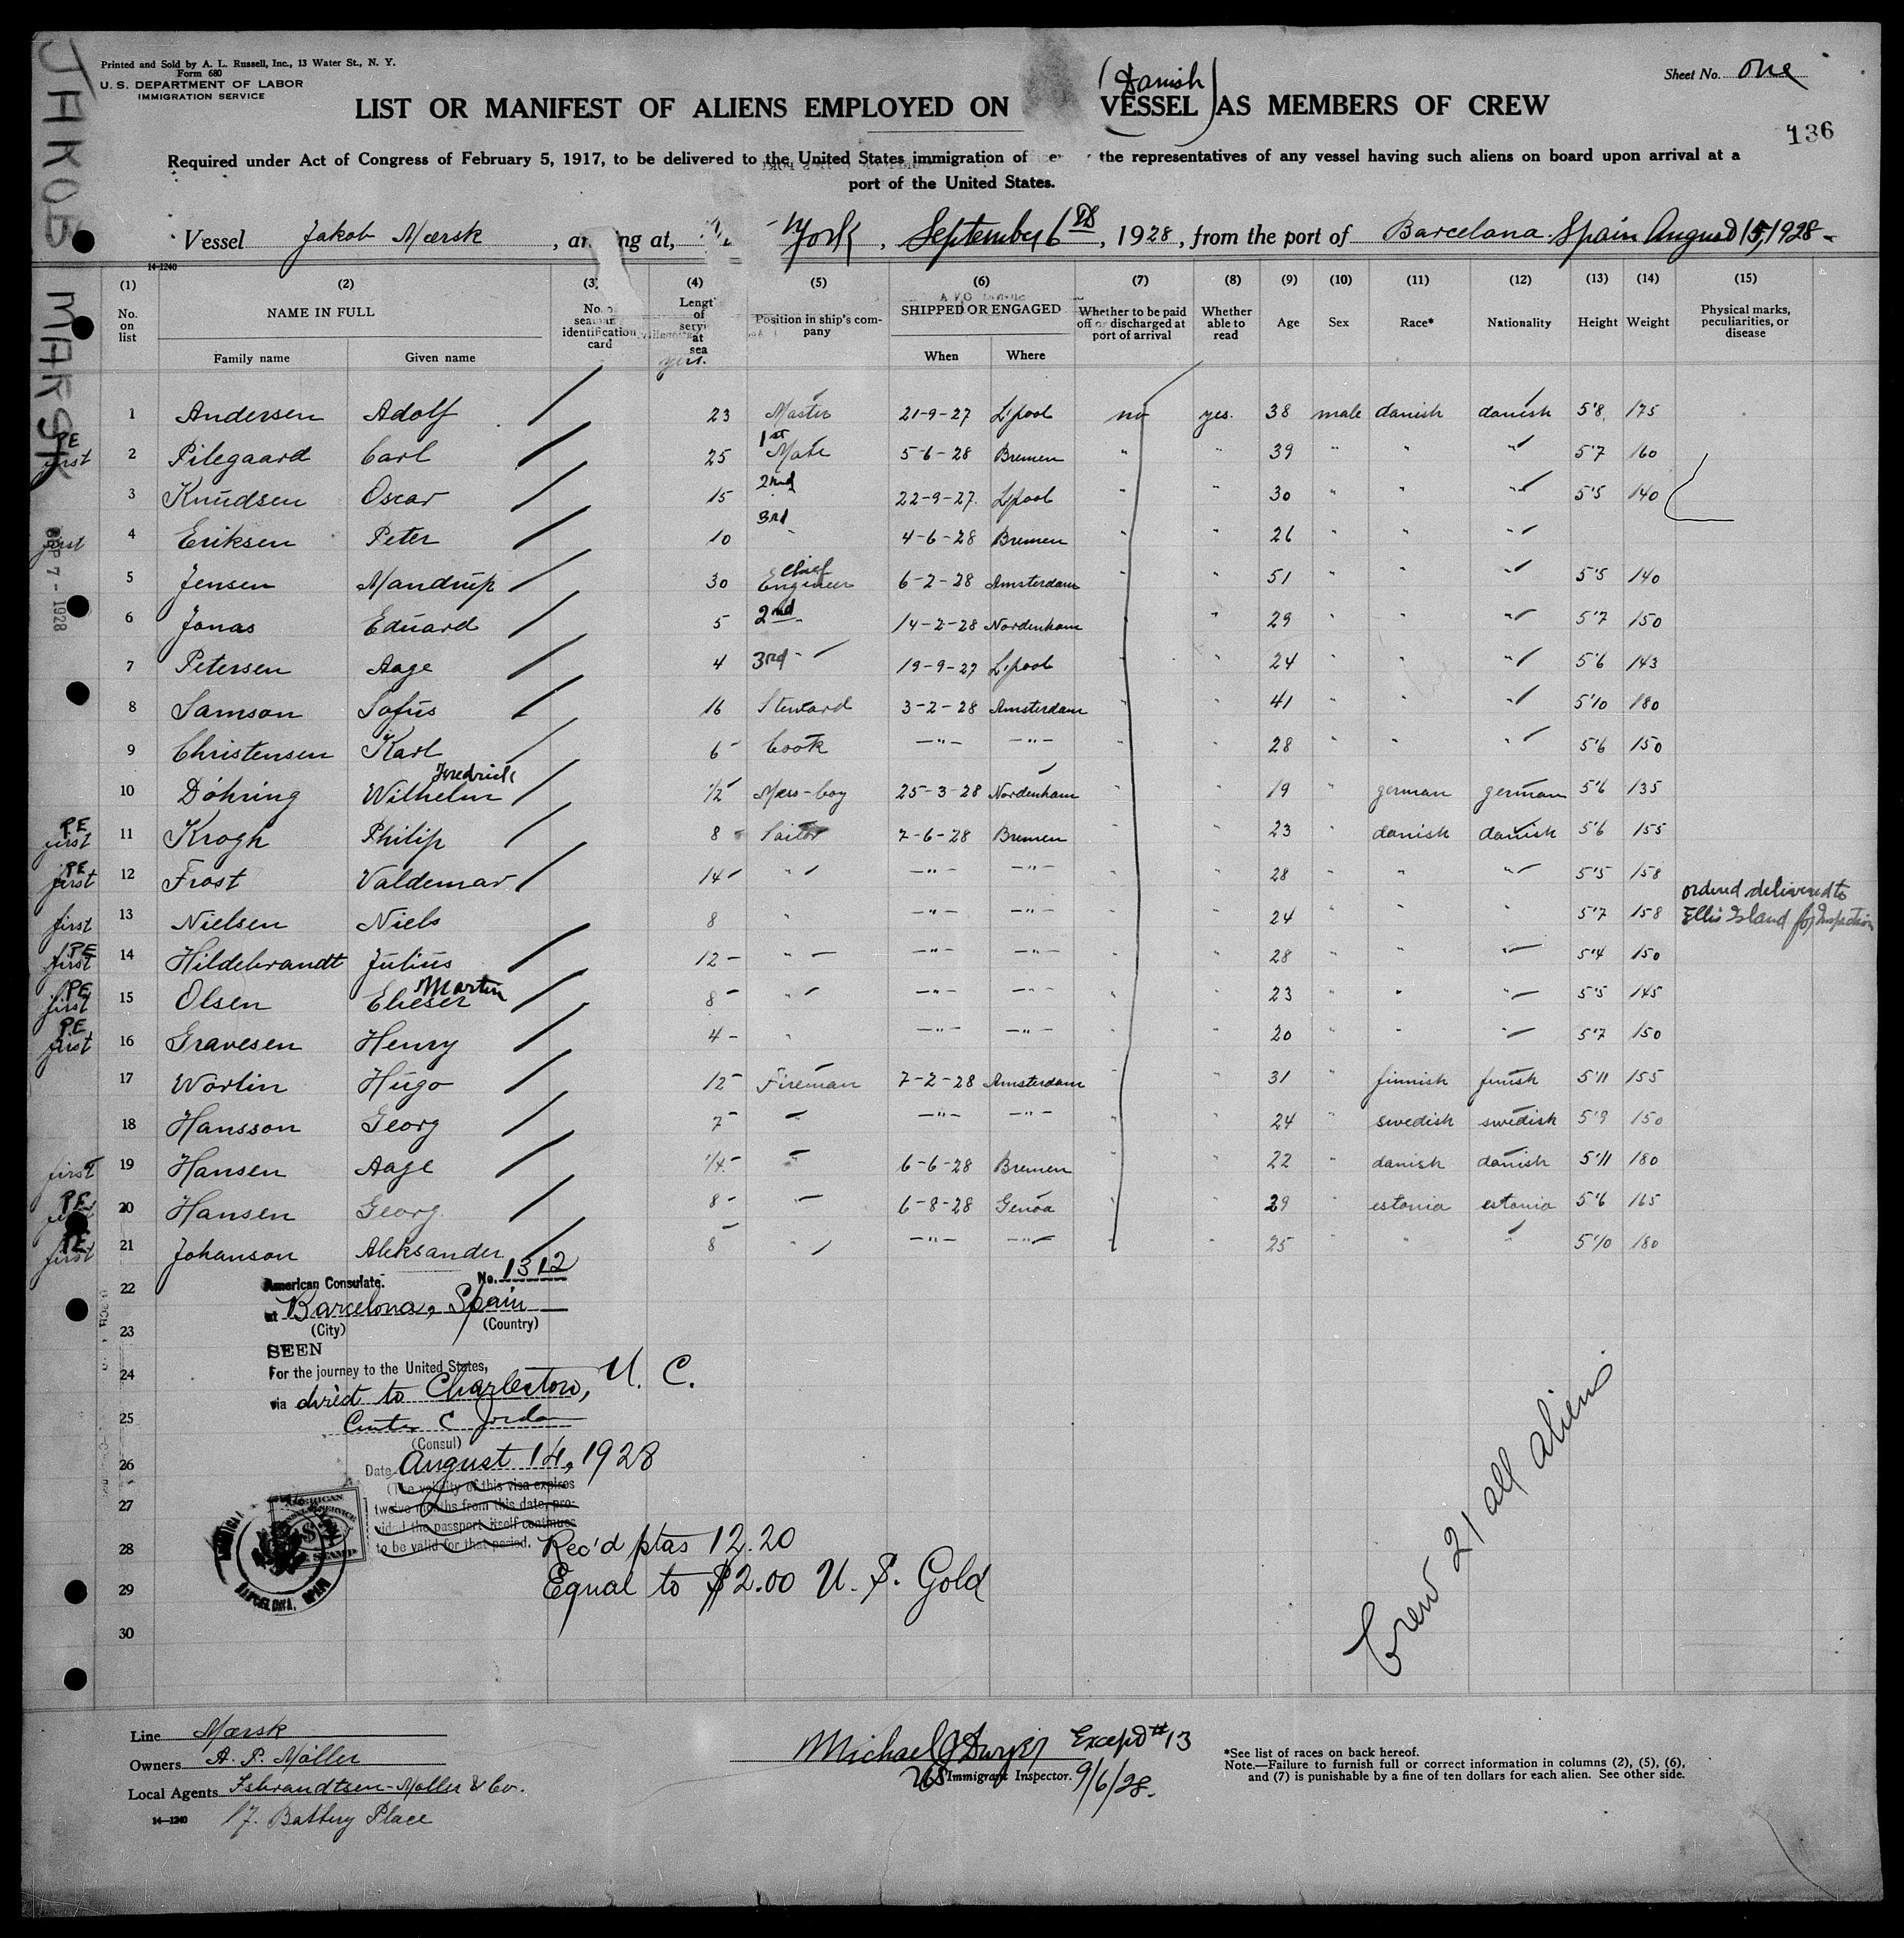 JAKOB MARSK
Printed and Sold by A. L. Russell, Inc., 13 Water St., N. Y.
Form 680
U. S. DEPARTMENT OF LABOR
IMMIGRATION SERVICE
Sheet No. one
(Danish)
LIST OR MANIFEST OF ALIENS EMPLOYED ON VESSEL AS MEMBERS OF CREW
136
Required under Act of Congress of February 5, 1917, to be delivered to the United States immigration of the representatives of any vessel having such aliens on board upon arrival at a
port of the United States.
Vessel Jakob Mærsk, ar ng at, York, September 6th, 1928, from the port of Barcelona. Spain August 15, 1928-
14-1240
(1) (2) (3) (4) (5) (6) (7) (8) (9) (10) (11) (12) (13) (14) (15)
No. on list NAME IN FULL Family name Given name No. o seaman identification card Lengt of servi at sea yrs. Position in ship's company SHIPPED OR ENGAGED When Where Whether to be paid off or discharged at port of arrival Whether able to read Age Sex Race* Nationality Height Weight Physical marks, peculiarities, or disease
1 Andersen Adolf 23 Master 21-9-27 L'pool no yes. 38 male danish danish 5'8 175
PE first 2 Pilegaard Carl 25 1st Mate 5-6-28 Bremen " " 39 " " " 5'7 160
3 Knudsen Oscar 15 2nd 22-9-27. L'pool " " 30 " " " 5'5 140
first 4 Eriksen Peter 10 3rd " 4-6-28 Bremen " " 26 " " "
5 Jensen Mandrup 30 Chief Engineer 6-2-28 Amsterdam " " 51 " " " 5'5 140
SEP 7 - 1928
6 Jonas Eduard 5 2nd 14-2-28 Nordenham " " 29 " " " 5'7 150
7 Petersen Aage 4 3rd " 19-9-27 L'pool " " 24 " " " 5'6 143
8 Samson Sofus 16 Steward 3-2-28 Amsterdam " " 41 " " " 5'10 180
9 Christensen Karl 6 Cook -"- -"- " " 28 " " " 5'6 150
10 Döhring Wilhelm Fredrick 1/2 Mess-boy 25-3-28 Nordenham " " 19 " german german 5'6 135
PE first 11 Krogh Philip 8 Sailor 7-6-28 Bremen " " 23 " danish danish 5'6 155
PE first 12 Frost Valdemar 14 " -"- -"- " " 28 " " " 5'5 158
first 13 Nielsen Niels 8 " -"- -"- " " 24 " " " 5'7 158 ordered delivered to Ellis Island for Inspection
PE first 14 Hildebrandt Julius 12 " -"- -"- " " 28 " " " 5'4 150
PE first 15 Olsen Elieser Martin 8 " -"- -"- " " 23 " " " 5'5 145
PE first 16 Gravesen Henry 4 " -"- -"- " " 20 " " " 5'7 150
17 Worlin Hugo 12 Fireman 7-2-28 Amsterdam " " 31 " finnish finish 5'11 155
18 Hansson Georg 7 " -"- -"- " " 24 " swedish swedish 5'9 150
first 19 Hansen Aage 1/4 " 6-6-28 Bremen " " 22 " danish danish 5'11 180
PE 20 Hansen Georg 8 " 6-8-28 Genoa " " 29 " estonia estonia 5'6 165
PE first 21 Johanson Aleksander 8 " -"- -"- " " 25 " " " 5'10 180
22
23
24
25
26
27
28
29
30
American Consulate. No. 1312
at Barcelona, Spain
(City) (Country)
SEEN
For the journey to the United States,
via direct to Charleston, U. C.
Jordan
(Consul)
Date August 14, 1928
(The validity of this visa expires
twelve months from this date, pro-
vided the passport itself continues
to be valid for that period.
BARCELONA, SPAIN
Rec'd ptas 12.20
Equal to $2.00 U. S. Gold
Crew 21 all aliens
Line Mærsk
Owners A. P. Möller
Local Agents Isbrandtsen-Moller & Co.
14-1240 17. Battery Place
Michael J Dwyer Except #13
US Immigrant Inspector. 9/6/28.
*See list of races on back hereof.
Note.—Failure to furnish full or correct information in columns (2), (5), (6),
and (7) is punishable by a fine of ten dollars for each alien. See other side.